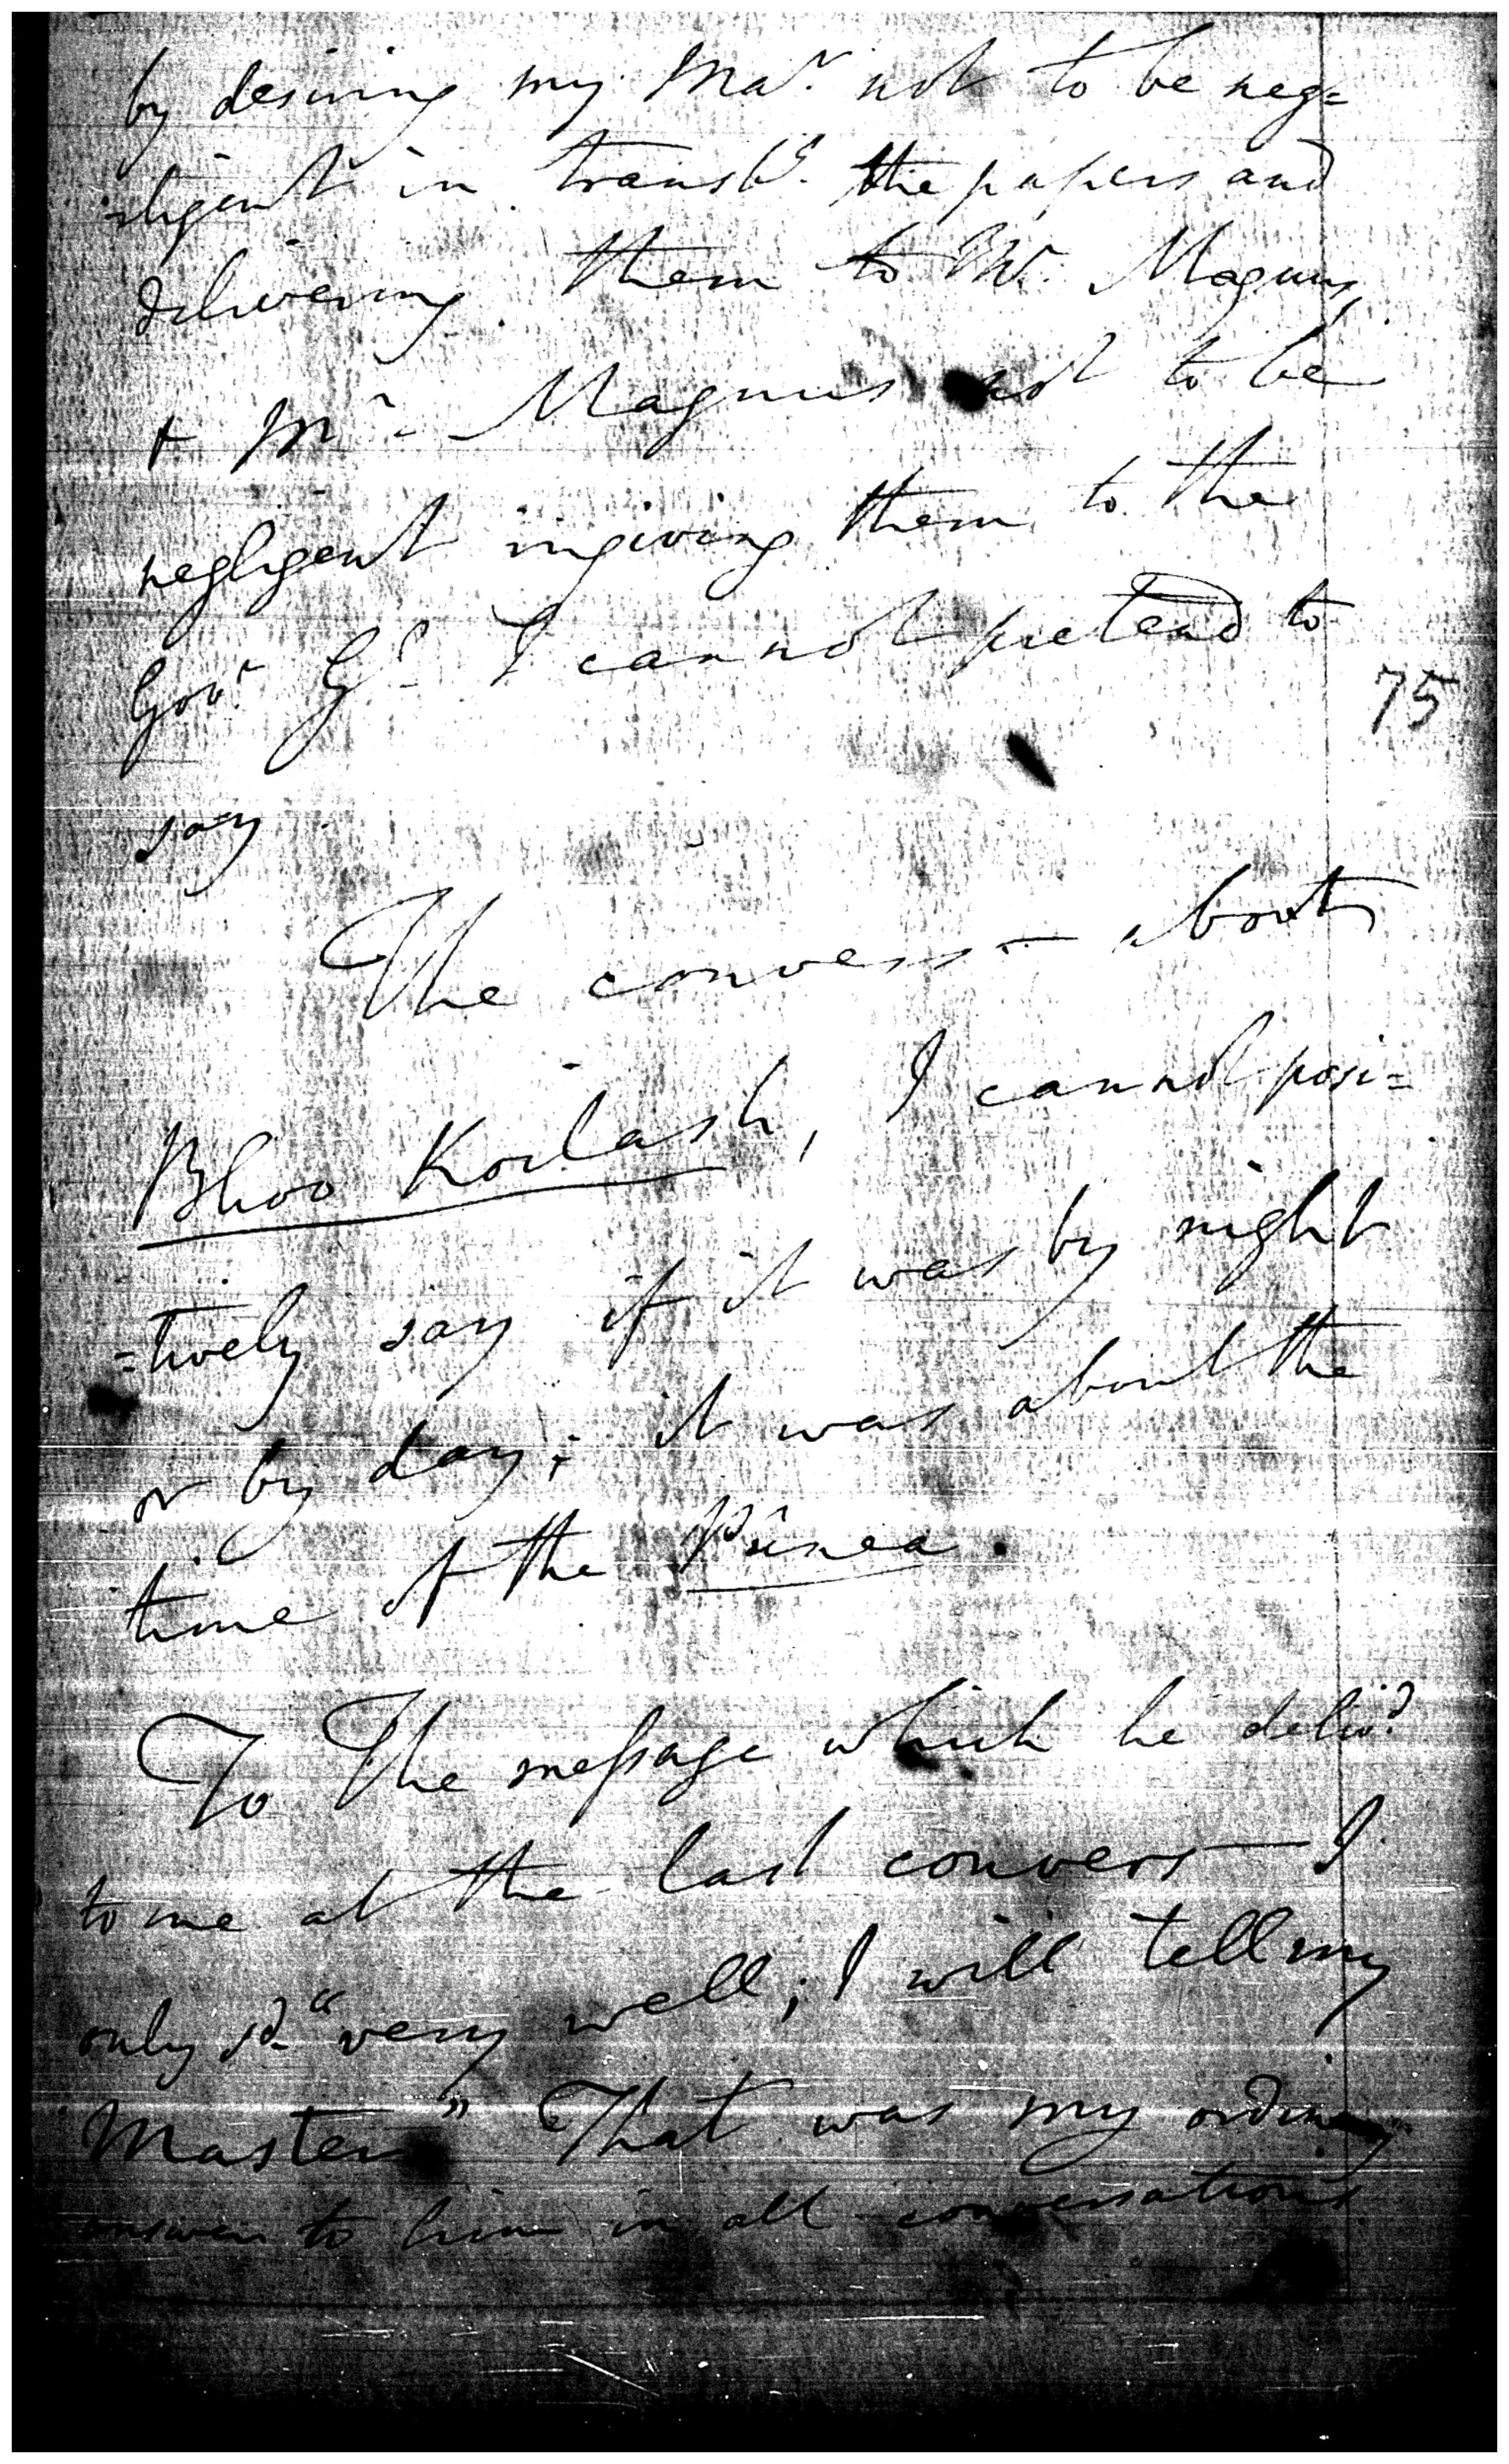 by desiring my Mar. not to be neg=
-ligent in transl.g the papers and
delivering them to Mr. Magnus,
& Mr. Magnus not to be
negligent in giving them to the
Govr. Gl. I cannot pretend to
75
say.
The convers.n about
Bhoo Koilash, I cannot posi=
=tively say if it was by night
or by day; it was about the
time of the
To the message which he delivd.
to me at the last convers.n I
only sd. "very well; I will tell my
Master" That was my ordinary
answer to him in all conversations